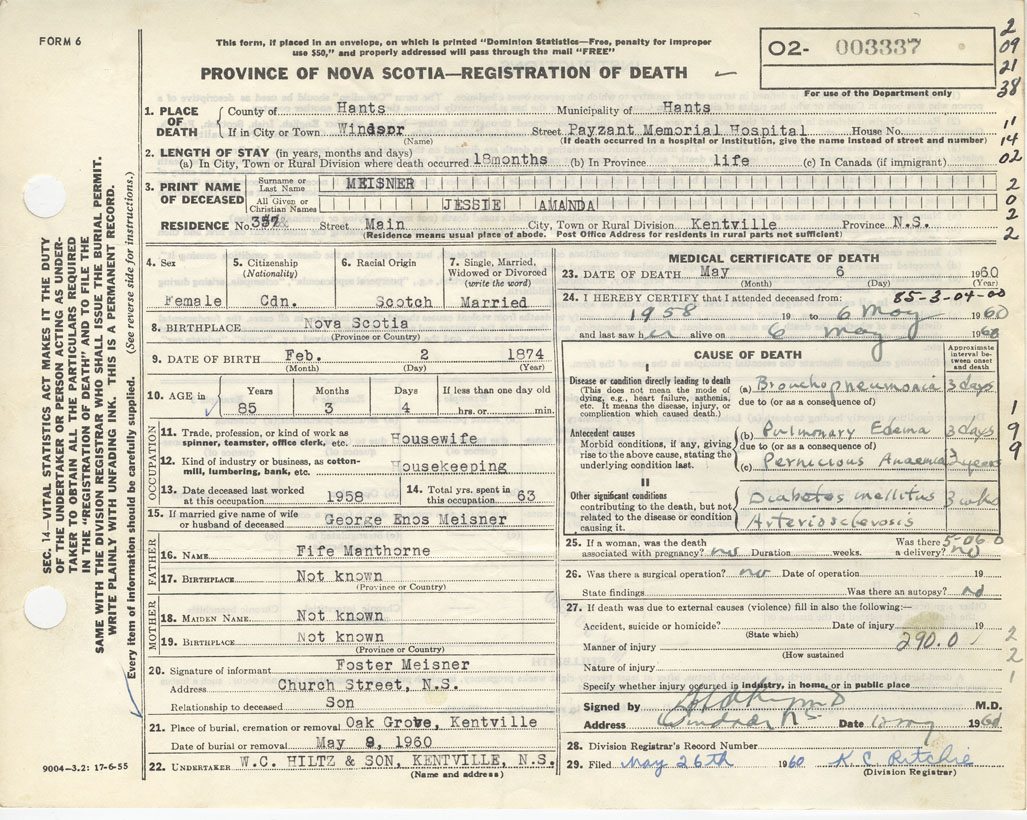 FORM 6
This form, if placed in an envelope, on which is printed "Dominion Statistics—Free, penalty for improper
use $50," and properly addressed will pass through the mail "FREE"
O2- 003337
For use of the Department only
PROVINCE OF NOVA SCOTIA—REGISTRATION OF DEATH
2
09
21
38
11
14
02
2
0
2
2
1. PLACE OF DEATH County of Hants Municipality of Hants
If in City or Town Windsor Street Payzant Memorial Hospital House No.
(Name) (If death occurred in a hospital or institution, give the name instead of street and number)
2. LENGTH OF STAY (in years, months and days)
(a) In City, Town or Rural Division where death occurred 18months (b) In Province life (c) In Canada (if immigrant)
3. PRINT NAME OF DECEASED Surname or Last Name MEISNER
All Given or Christian Names JESSIE AMANDA
RESIDENCE No. Street Main City, Town or Rural Division Kentville Province N.S.
(Residence means usual place of abode. Post Office Address for residents in rural parts not sufficient)
4. Sex 5. Citizenship (Nationality) 6. Racial Origin 7. Single, Married, Widowed or Divorced (write the word)
Female Cdn. Scotch Married
8. BIRTHPLACE Nova Scotia
(Province or Country)
9. DATE OF BIRTH Feb. 2 1874
(Month) (Day) (Year)
10. AGE in Years Months Days If less than one day old
85 3 4 hrs. or min.
OCCUPATION
11. Trade, profession, or kind of work as spinner, teamster, office clerk, etc. Housewife
12. Kind of industry or business, as cotton-mill, lumbering, bank, etc. Housekeeping
13. Date deceased last worked at this occupation 1958 14. Total yrs. spent in this occupation 63
15. If married give name of wife or husband of deceased George Enos Meisner
FATHER
16. NAME Fife Manthorne
17. BIRTHPLACE Not known
(Province or Country)
MOTHER
18. MAIDEN NAME Not known
19. BIRTHPLACE Not known
(Province or Country)
20. Signature of informant Foster Meisner
Address Church Street, N.S.
Relationship to deceased Son
21. Place of burial, cremation or removal Oak Grove, Kentville
Date of burial or removal May 9, 1960
22. UNDERTAKER W.C. HILTZ & SON, KENTVILLE, N.S.
(Name and address)
MEDICAL CERTIFICATE OF DEATH
23. DATE OF DEATH May 6 1960
(Month) (Day) (Year)
24. I HEREBY CERTIFY that I attended deceased from: 85-3-04-00
1958 19 to 6 May 1960
and last saw her alive on 6 May 1960
CAUSE OF DEATH
Approximate interval between onset and death
I
Disease or condition directly leading to death (a) Bronchopneumonia 3 days
(This does not mean the mode of dying, e.g., heart failure, asthenia, etc. It means the disease, injury, or complication which caused death.) due to (or as a consequence of)
Antecedent causes (b) Pulmonary Edema 3 days
Morbid conditions, if any, giving rise to the above cause, stating the underlying condition last. due to (or as a consequence of)
(c) Pernicious Anaemia years
II
Other significant conditions contributing to the death, but not related to the disease or condition causing it. Diabetes mellitus 3 wks
Arteriosclerosis
1
9
9
25. If a woman, was the death associated with pregnancy? no Duration weeks. Was there a delivery? no
5-060
26. Was there a surgical operation? no Date of operation 19
State findings Was there an autopsy? no
27. If death was due to external causes (violence) fill in also the following:—
Accident, suicide or homicide? Date of injury 19
(State which)
Manner of injury 290.0
(How sustained)
Nature of injury
2
2
1
Specify whether injury occurred in industry, in home, or in public place
Signed by M.D.
Address Windsor NS Date 12 May 1960
28. Division Registrar's Record Number
29. Filed May 26th 1960 K C Ritchie
(Division Registrar)
9004-3.2: 17-6-55
SEC. 14—VITAL STATISTICS ACT MAKES IT THE DUTY
OF THE UNDERTAKER OR PERSON ACTING AS UNDER-
TAKER TO OBTAIN ALL THE PARTICULARS REQUIRED
IN THE "REGISTRATION OF DEATH" AND TO FILE THE
SAME WITH THE DIVISION REGISTRAR WHO SHALL ISSUE THE BURIAL PERMIT.
WRITE PLAINLY WITH UNFADING INK. THIS IS A PERMANENT RECORD.
Every item of information should be carefully supplied. (See reverse side for instructions.)